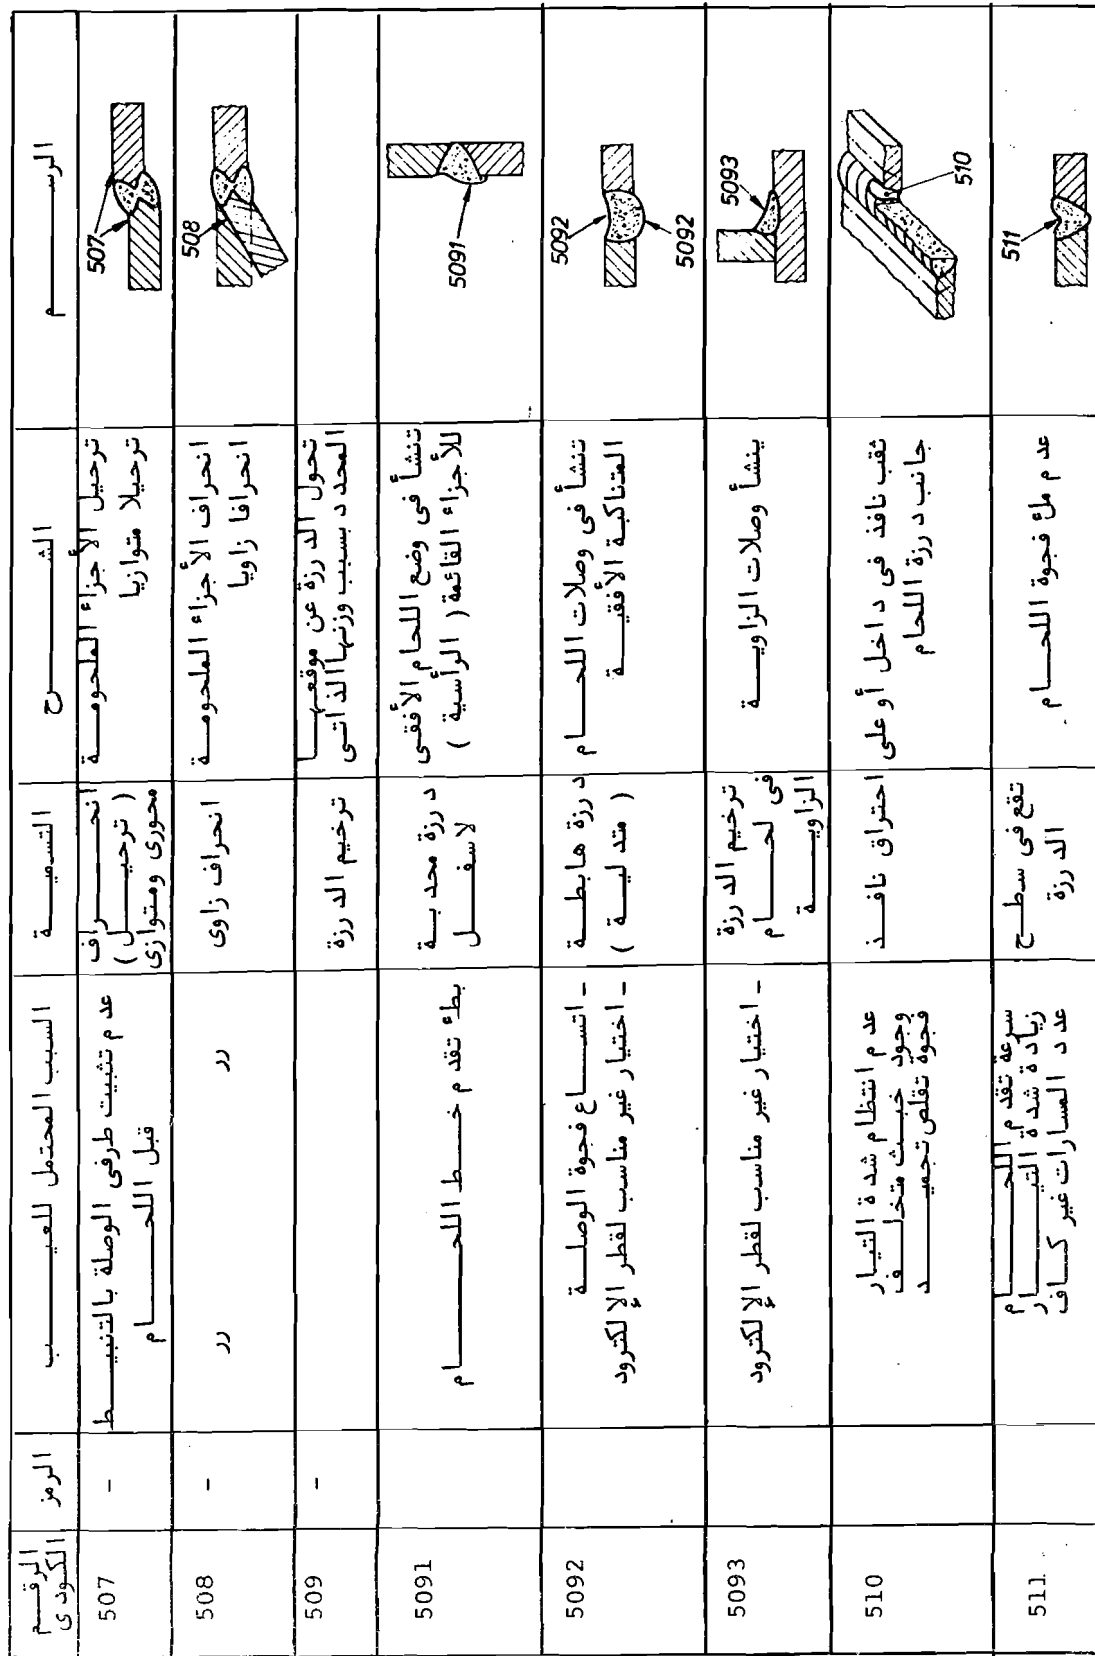 الرقم الكودى
الرمز
السبب المحتمل للعيب
التسمية
الشرح
الرسم
507
-
عدم تثبيت طرفى الوصلة بالتنبيط
قبل اللحام
انحراف
( ترحيل )
محورى ومتوازى
ترحيل الأجزاء الملحومة
ترحيلا متوازيا
507
508
-
رر
رر
انحراف زاوى
انحراف الأجزاء الملحومة
انحرافا زاويا
508
509
-
ترخيم الدرزة
تحول الدرزة عن موقعها
المحدد بسبب وزنها الذاتى
5091
بطء تقدم خط اللحام
درزة محدبة
لاسفل
تنشأ فى وضع اللحام الأفقى
للأجزاء القائمة ( الرأسية )
5091
5092
- اتساع فجوة الوصلة
- اختيار غير مناسب لقطر الإلكترود
درزة هابطة
( متدلية )
تنشأ فى وصلات اللحام
المتناكبة الأفقية
5092
5092
5093
- اختيار غير مناسب لقطر الإلكترود
ترخيم الدرزة
فى لحام
الزاوية
ينشأ وصلات الزاوية
5093
510
عدم انتظام شدة التيار
وجود خبث متخلف
فجوة تقلص تجميد
احتراق نافذ
ثقب نافذ فى داخل أو على
جانب درزة اللحام
510
511
سرعة تقدم اللحام
زيادة شدة التيار
عدد المسارات غير كاف
تقع فى سطح
الدرزة
عدم ملء فجوة اللحام
511